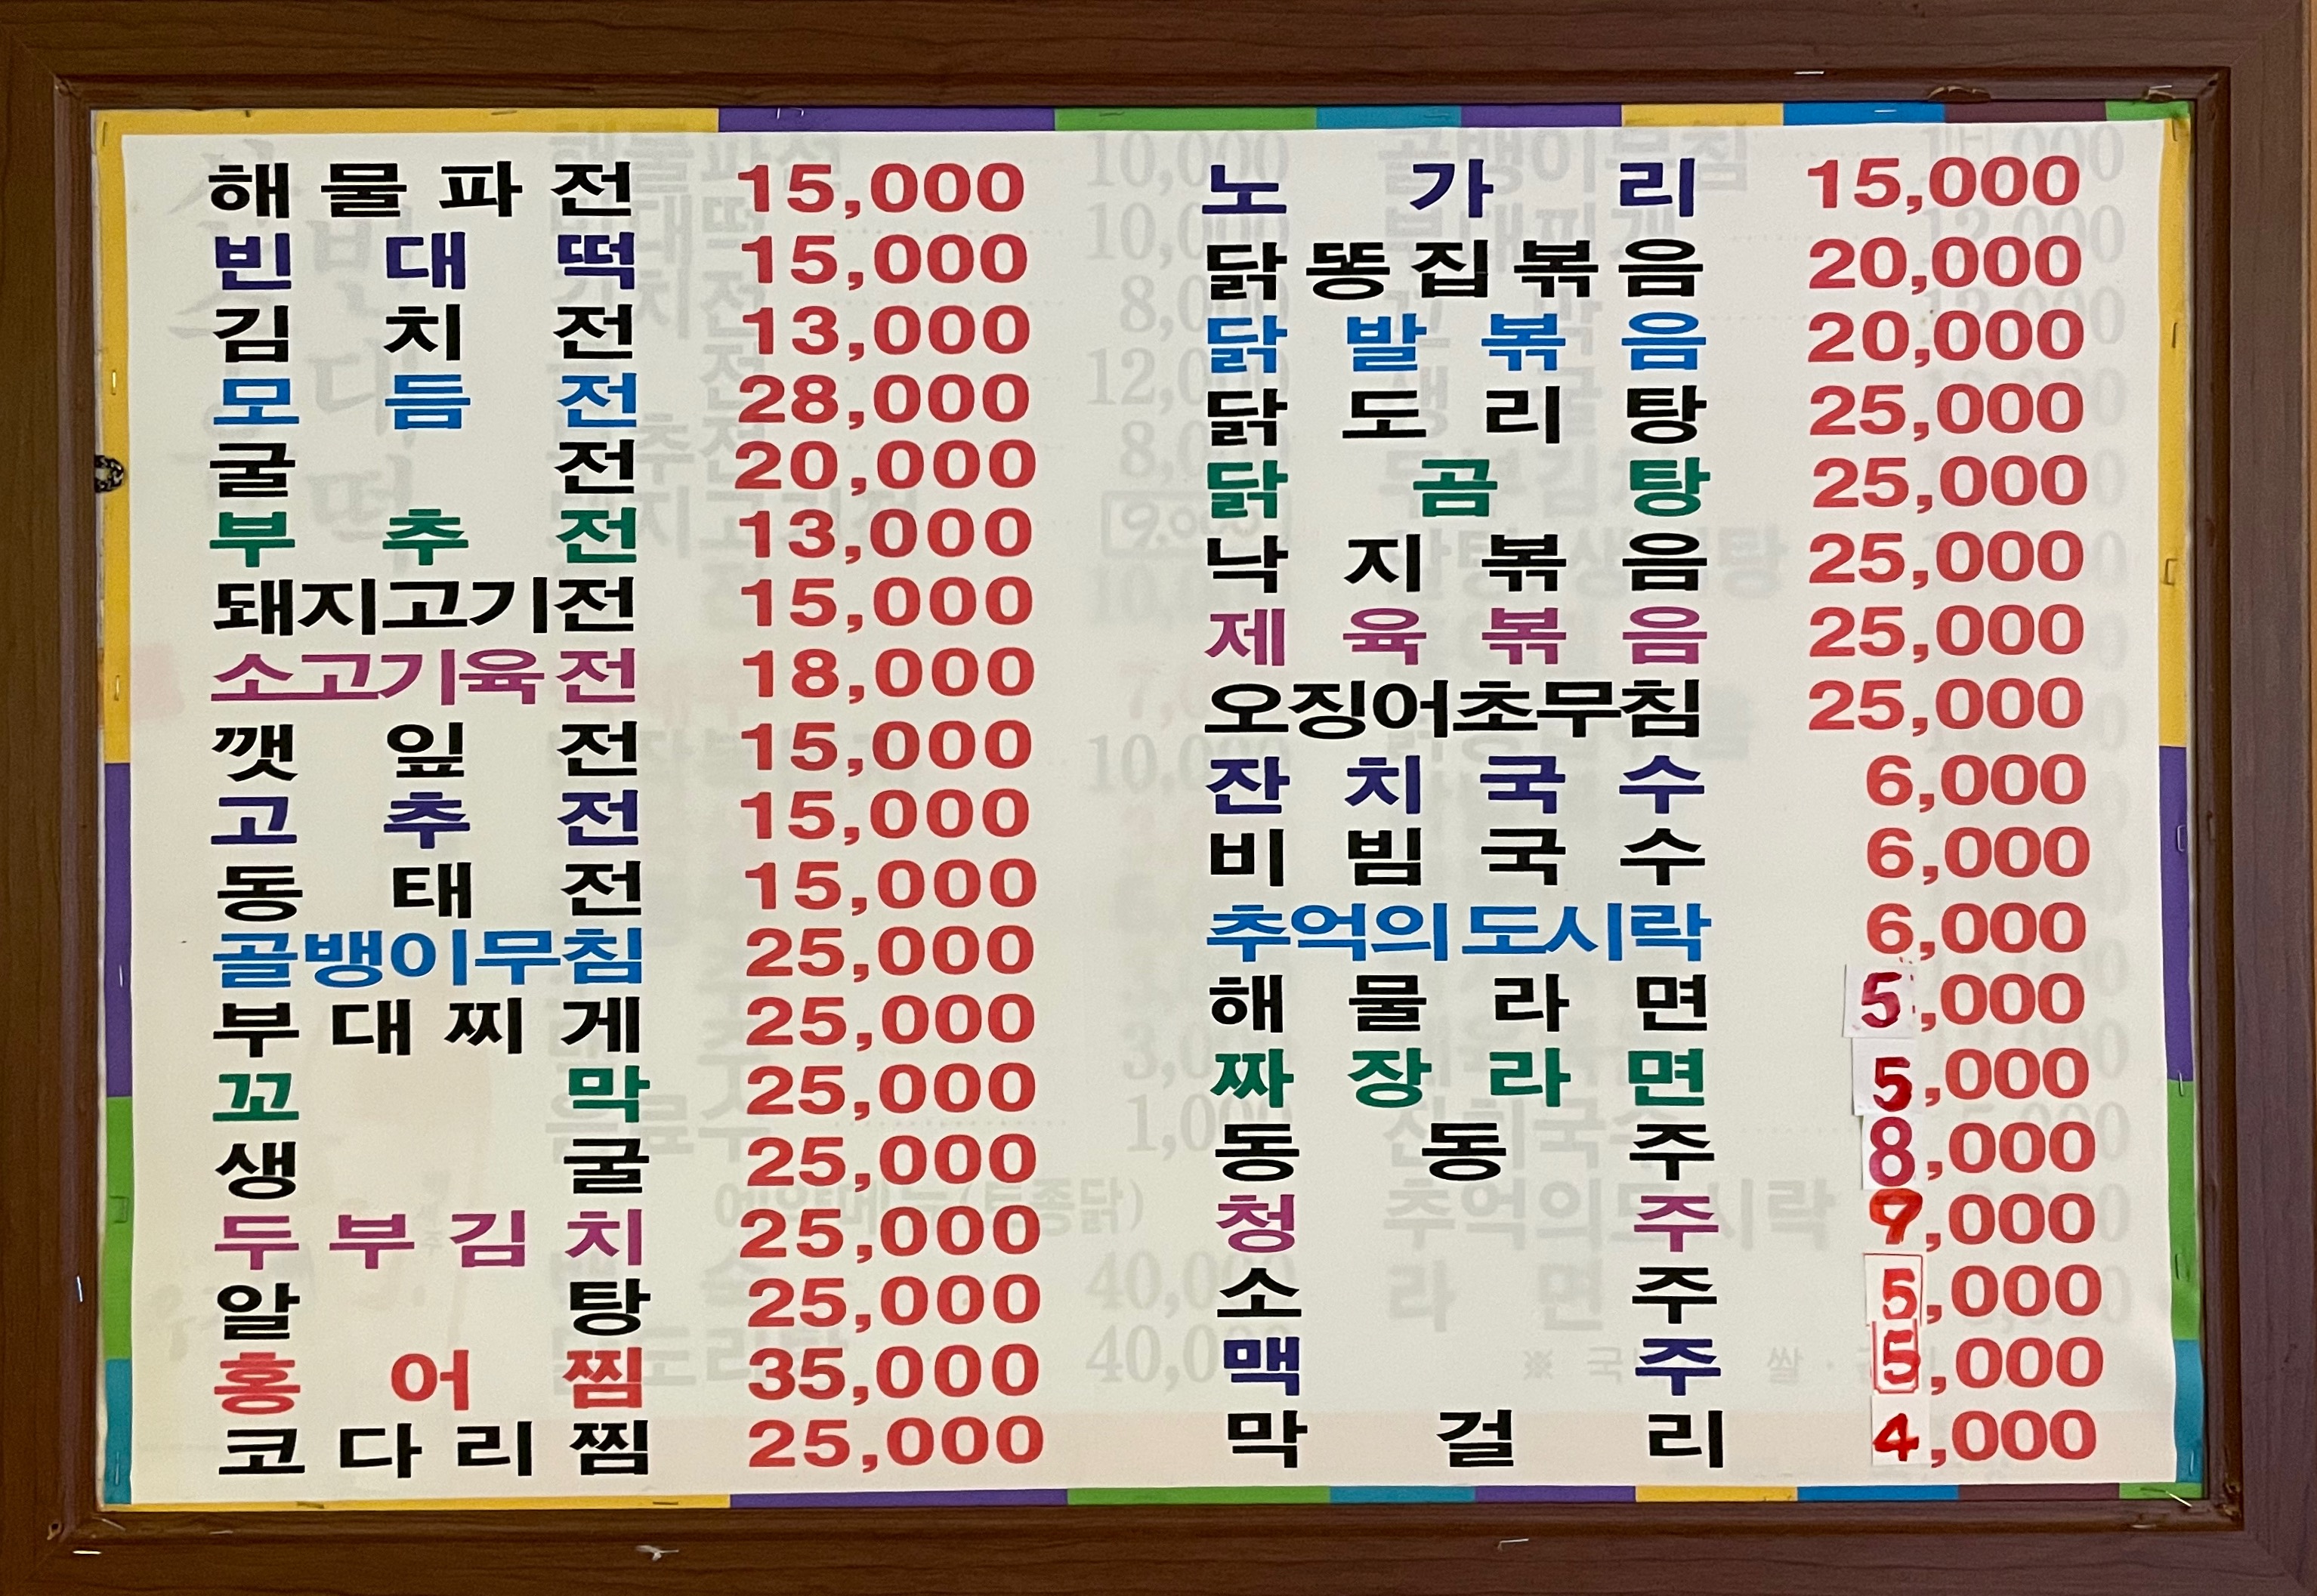 해물파전 15,000
빈대떡 15,000
김치전 13,000
모듬전 28,000
굴전 20,000
부추전 13,000
돼지고기전 15,000
소고기육전 18,000
깻잎전 15,000
고추전 15,000
동태전 15,000
골뱅이무침 25,000
부대찌게 25,000
꼬막 25,000
생굴 25,000
두부김치 25,000
알탕 25,000
홍어찜 35,000
코다리찜 25,000
노가리 15,000
닭똥집볶음 20,000
닭발볶음 20,000
닭도리탕 25,000
닭곰탕 25,000
낙지볶음 25,000
제육볶음 25,000
오징어초무침 25,000
잔치국수 6,000
비빔국수 6,000
추억의도시락 6,000
해물라면 5,000
짜장라면 5,000
동동주 8,000
청주 ,000
소주 5,000
맥주 5,000
막걸리 4,000